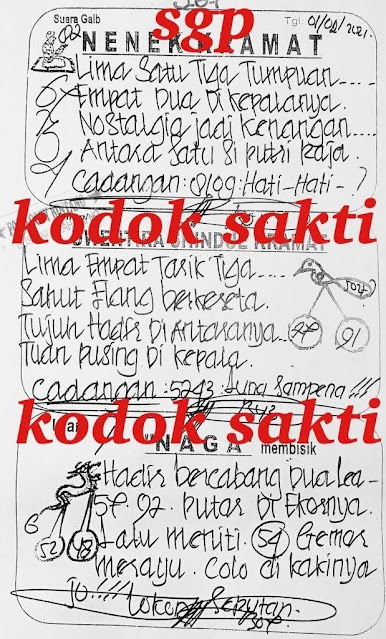 Suara Gaib
sgp
Tgl: 01/04/2021
NENEK KRAMAT
Lima Satu Tiga Tumpuan....
Empat Dua Di Kepalanya.
Nostalgia jadi Kenangan....
Antara Satu Si putri Raja.
Cadangan: 8109: Hati-Hati-?
kodok sakti
KRAMAT
Lima Empat Tarik Tiga....
Sahut Elang berkeseta.
Tujuh Hadis Di Antaranya..
91
Tuan pusing Di kepala.
Cadangan: 5243
kodok sakti
"NAGA" membisik
Hadis bercabang Dua
57. 92. putar Di Ekornya.
6
52
Satu meniti. 54 Gemar
merayu. Colo di kakinya